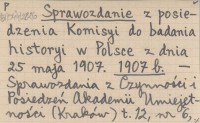 P
Sprawozdanie z posie-
dzenia Komisyi do badania
historyi w Polsce z dnia
25 maja 1907. 1907 b. —
Sprawozdania z Czynności i
Posiedzeń Akademii Umiejęt-
ności (Kraków) t. 12, nr 6,